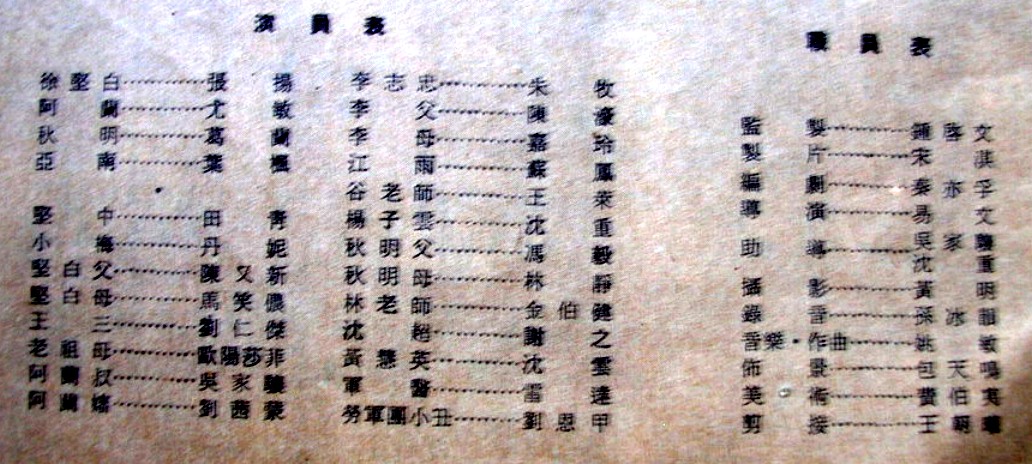 演員表
徐堅白………張揚
阿蘭………尤敏
秋明………葛蘭
亞南………葉楓
堅中………田青
小梅………丹妮
堅白父………陳又新
堅白母………馬笑儂
王三………劉仁傑
老祖母………歐陽莎菲
阿蘭叔………吳家驤
阿蘭嬸………劉茜蒙
李志忠………朱牧
李父………陳
李母………嘉玲
江雨………蘇鳳
谷老師………王萊
楊子雲………沈重
秋明父………馮毅
秋明母………林靜
林老師………金伯健
沈超………謝之
黃慧英………沈雲
軍醫………雷達
勞軍團小丑………劉恩甲
職員表
監製………鍾啓文
製片………宋淇
編劇………秦亦孚
導演………易文
助導………吳家驤
沈重
攝影………黃明
錄音………孫冰韻
音樂·作曲………姚敏
佈景………包天鳴
美術………費伯夷
剪接………王朝曦